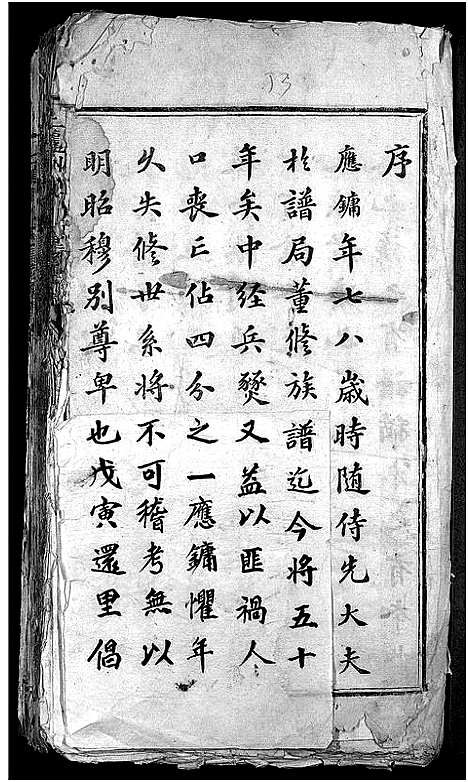 序
應鏞年七八歲時随侍先大夫
於譜局董修族譜迄今將五十
年矣中经兵燹又益以匪禍人
口喪亡佔四分之一應鏞懼年
乆失修世系將不可稽考無以
明昭穆别尊卑也戊寅還里倡
13